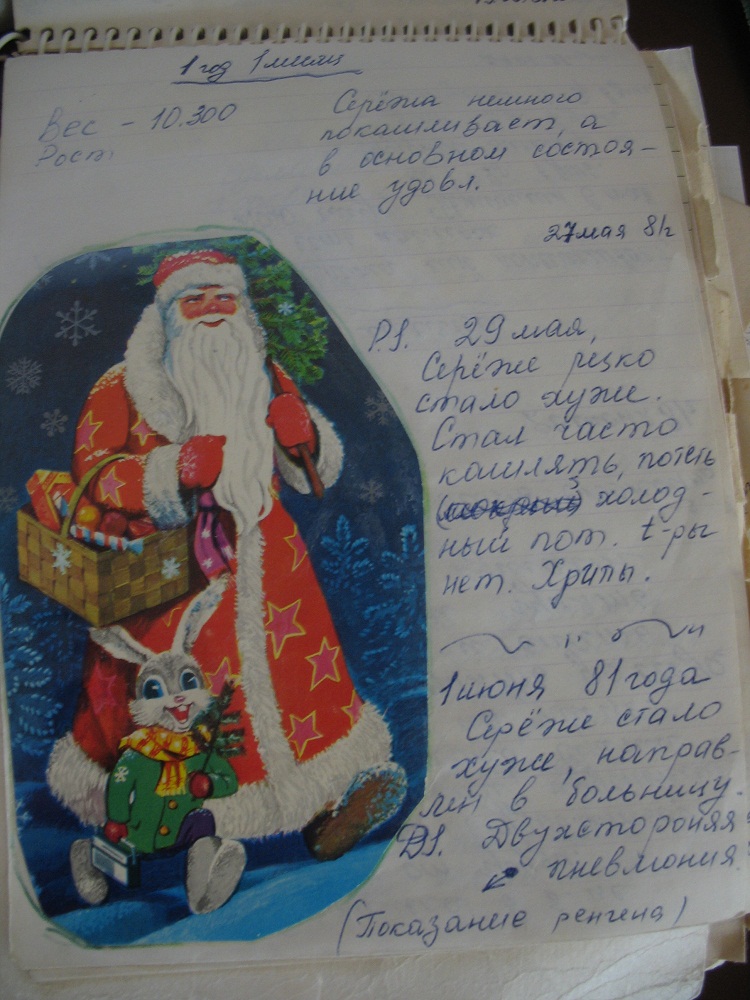 1 год 1 месяц
Вес - 10.300
Рост
Серёжа немного
покашливает, а
в основном состоя-
ние удовл.
27 мая 81г
P.S. 29 мая,
Серёже рецко
стало хуже.
Стал часто
кашлять, потеть
холод-
ный пот. t-ры
нет. Хрипы.
1 июня 81 года
Серёже стало
хуже, направ-
лен в больницу.
DS. Двухстороняя
пневмония.
(Показание ренгена)